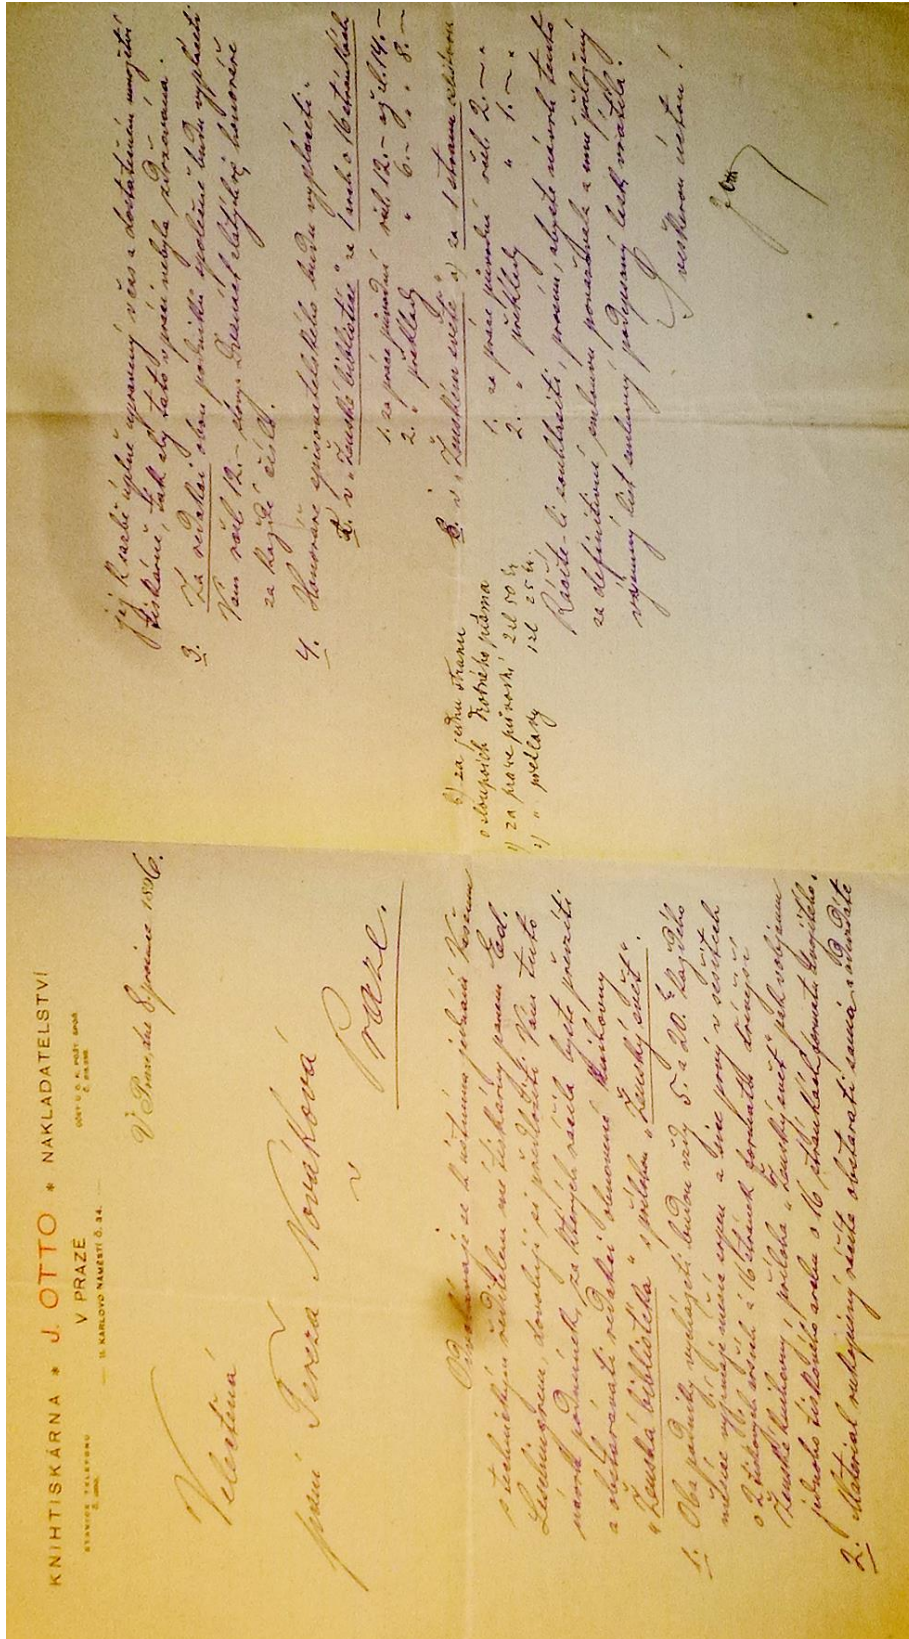 KNIHTISKÁRNA * J. OTTO * NAKLADATELSTVÍ
V PRAZE
STANICE TELEFONU
II. KARLOVO NÁMĚSTÍ Č. 34.
V Praze, dne 8. prosince 1896.
Velectěná
paní Tereza Nováková
v
Praze.
Odvolávaje se k ústnímu jednání Vašemu
s technickým ředitelem mé tiskárny panem Ed.
Leschingrem, dovoluji si předložiti Vám tuto
návrh podmínek, za kterých račila byste převzíti
a obstarávati redakci obnovené knihovny
„Ženská bibliotéka“ s přílohou „Ženský svět“.
1. Oba podniky vycházeti budou vždy 5. a 20. každého
měsíce vyjímaje měsíce srpen a sice prvý v sešitech
o 2 tiskových arších à 16 stránek formátu dřívější
Ženské knihovny, příloha „Ženský svět“ pak objemu
jednoho tiskového archu o 16 stránkách formátu
2. Materiál rukopisný račíte obstarati sama a dodáte
jej k sazbě úplně upravený včas a dostatečném množství
tiskárně, tak aby tato v práci nebyla zdržována.
3. Za redakci obou podniků společně budu vypláceti
Vám rčsl 12.- slovy: Dvanáct zlatých co honoráře
za každé číslo.
4. Honoráře spisovatelského budu vypláceti:
a. v „Ženské bibliotéce“ za 1 arch o 16 stránkách
1. za práce původní rčsl 12.- až zl. 14.-
2. „ překlady „ 6.- „ „ 8.-
b. v „Ženském světě“ a) za 1 stranu
1. za práce původní rčsl 2.-
2. „ překlady „ 1.-
b) za jednu stranu
o sloupcích drobného písma
1) za práce původní 2 zl 50 kr
2) „ překlady 1 zl 25 kr.
Račíte-li souhlasiti, prosím, abyste návrh tento
za definitivní smluvu považovala a mně přiložený
vzájemný list smluvný podepsaný laskavě vrátila.
S veškerou úctou!
J. Otto